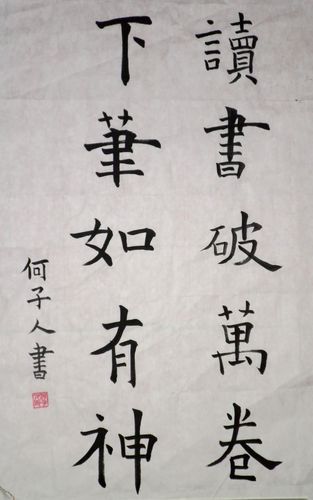 讀書破萬卷
下筆如有神
何子人書